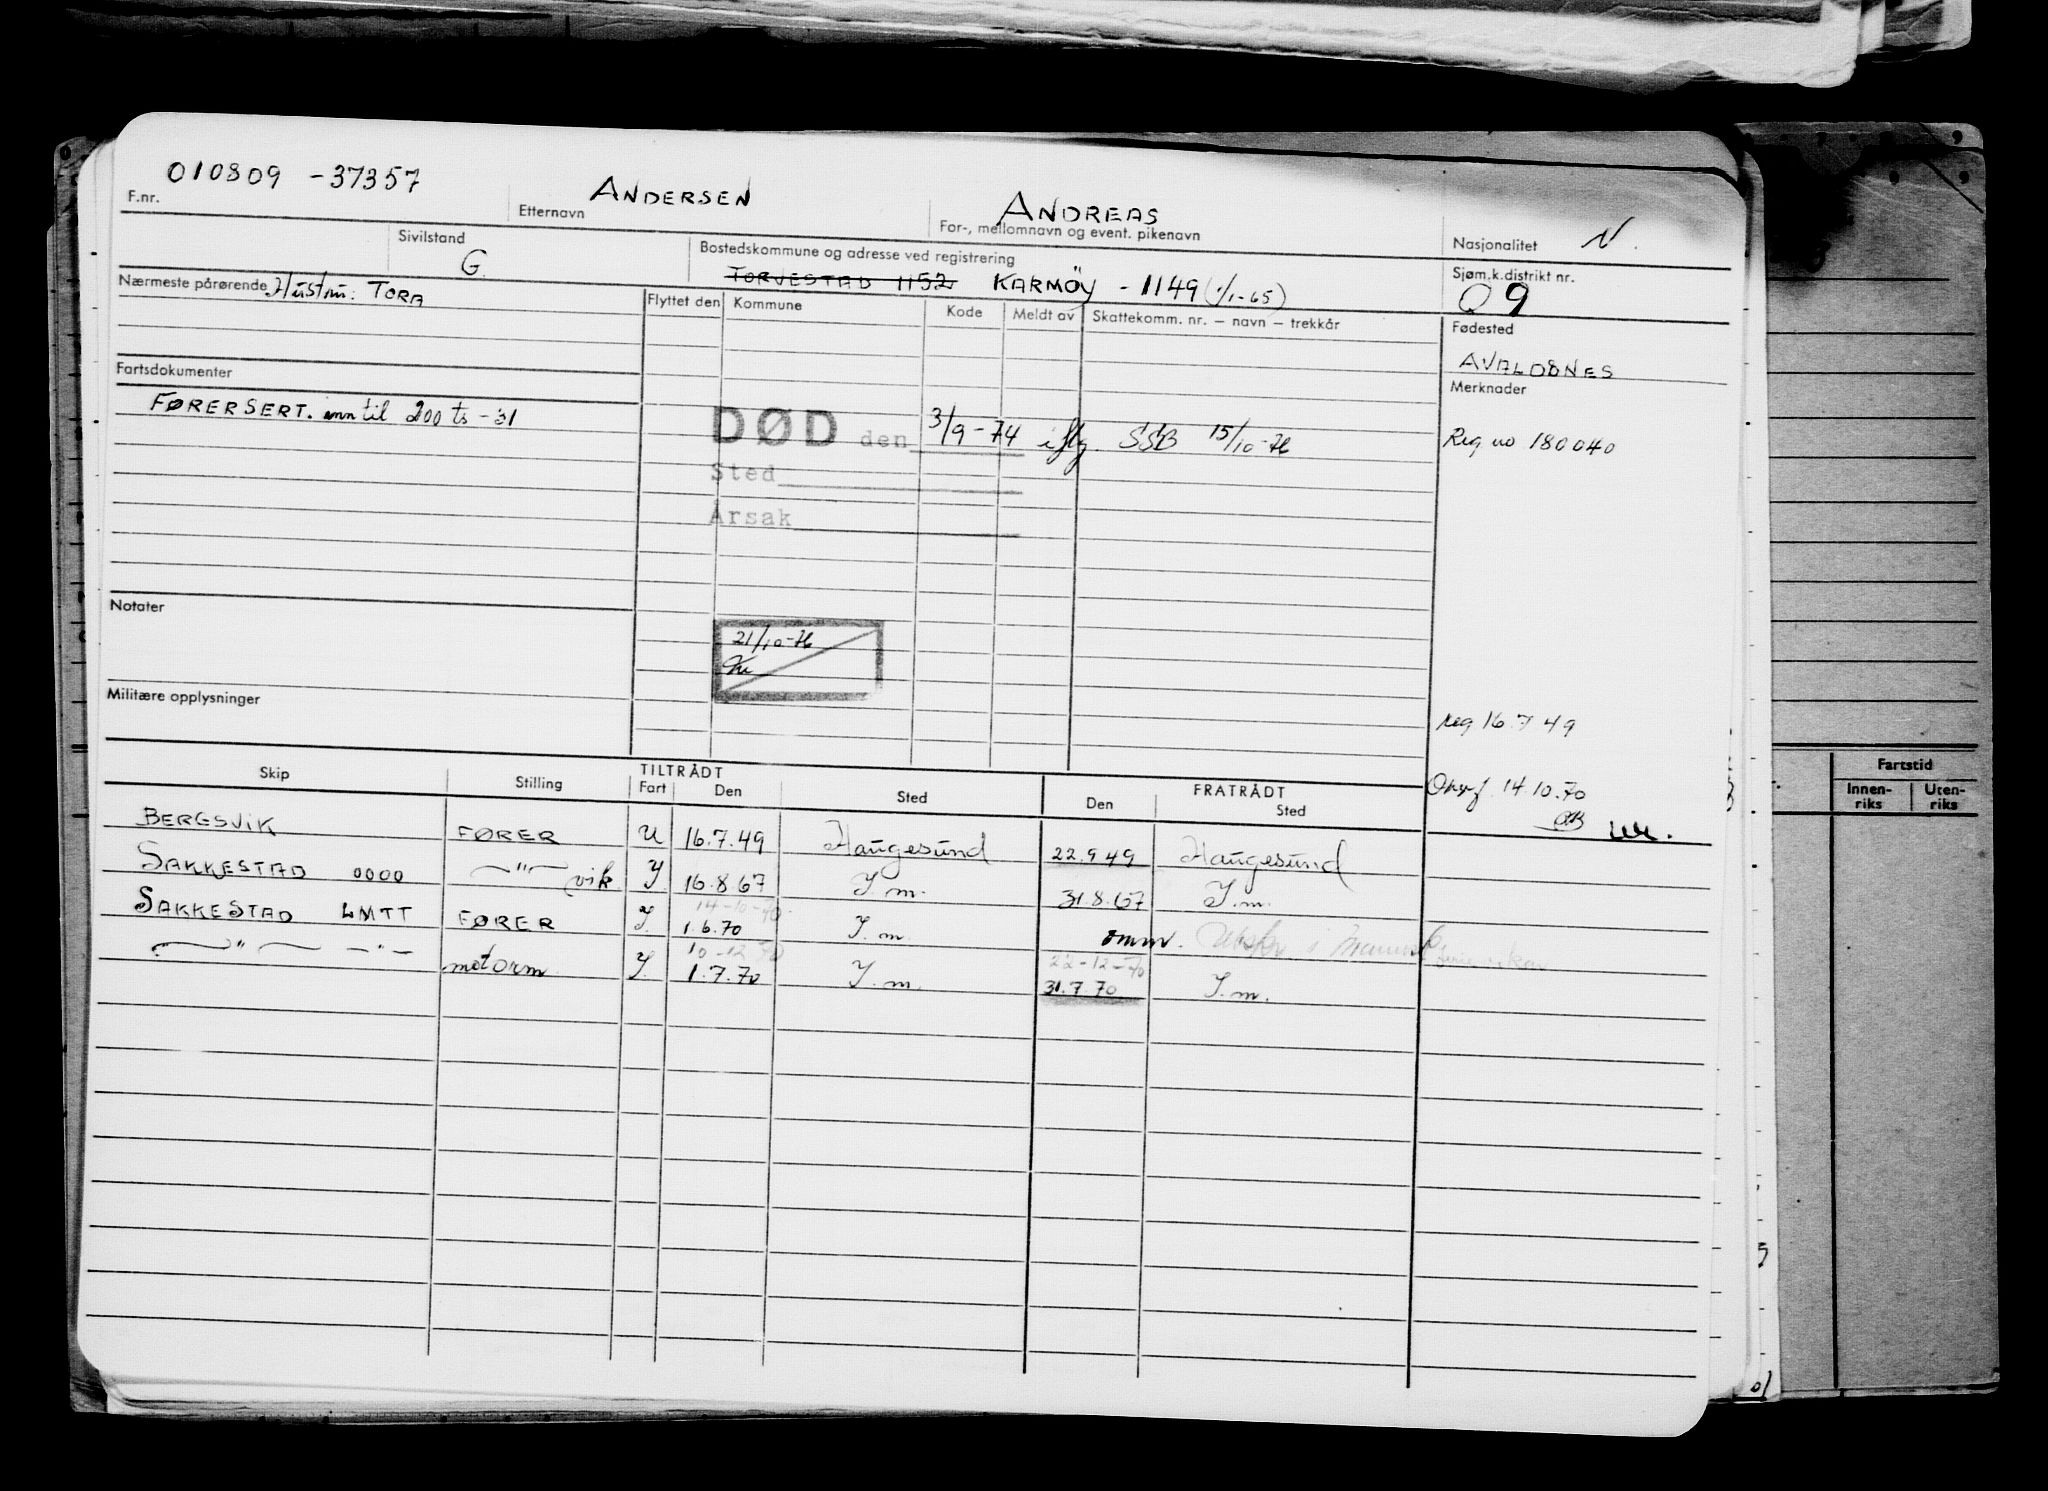 010809 - 37357
F.nr.
Etternavn ANDERSEN
For-, mellomnavn og event. pikenavn ANDREAS
Nasjonalitet N.
Sivilstand G.
Bostedskommune og adresse ved registrering
TORVESTAD 1152 KARMÖY - 1149 (1/1-65)
Sjøm.k.distrikt nr.
09
Nærmeste pårørende Hustru: TORA
Flyttet den Kommune Kode Meldt av Skattekomm. nr. – navn – trekkår
Fødested
AVALDSNES
Fartsdokumenter
FØRERSERT. inntil 200 ts - 31
Merknader
Reg no 180040
DØD den 3/9-74 iflg. SSB 15/10-76
Sted
Årsak
Notater
21/10-76
Militære opplysninger
reg 16.7 49
14.10.70
Skip Stilling TILTRÅDT Fart Den Sted FRATRÅDT Den Sted
BERGSVIK FØRER U 16.7.49 Haugesund 22.9 49 Haugesund
SAKKESTAD 0000 —"— vik Y. 16.8.67 Y.m. 31.8.67 Y.m.
14-10-70
SAKKESTAD LMTT FØRER Y. 1.6.70 Y.m omm.
10-12-70 22-12-70
—"— —"— motorm Y. 1.7.70 Y.m. 31.7.70 Y.m.
Fartstid
Innen-riks Uten-riks